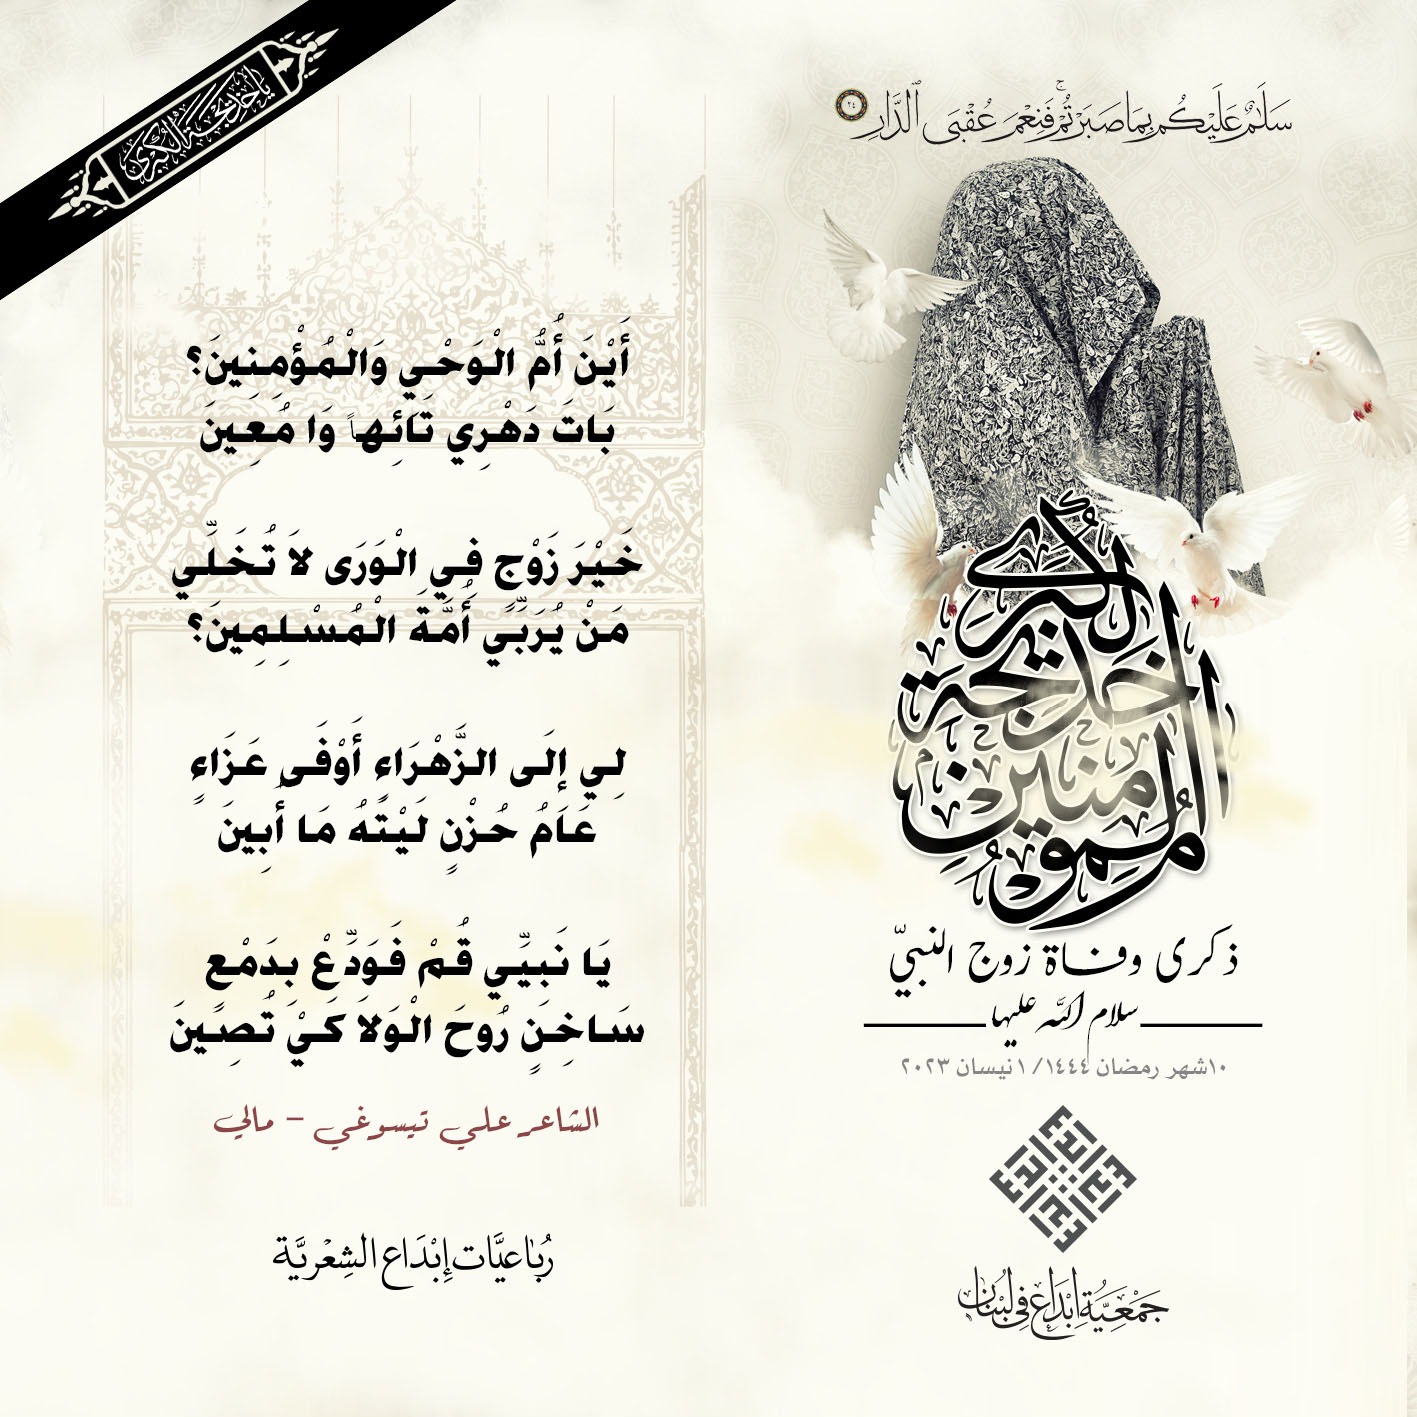 يا خديجة الكبرى
سَلَامٌ عَلَيْكُم بِمَا صَبَرْتُمْ ۚ فَنِعْمَ عُقْبَى ٱلدَّارِ ٢٤
أَيْنَ أُمُّ الْوَحْيِ وَالْمُؤْمِنِينَ؟
بَاتَ دَهْرِي تَائِهاً وَا مُعِينَ
خَيْرَ زَوْجٍ فِي الْوَرَى لاَ تُخَلِّي
مَنْ يُرَبِّي أُمَّةَ الْمُسْلِمِينَ؟
لِي إلَى الزَّهْرَاءِ أَوْفَى عَزَاءٍ
عَامُ حُزْنٍ لَيْتَهُ مَا أُبِينَ
يَا نَبِيِّي قُمْ فَوَدِّعْ بِدَمْعٍ
سَاخِنٍ رُوحَ الْوَلاَ كَيْ تُصِينَ
الشاعر علي تيسوغي – مالي
رُبَاعيَّات إِبْدَاع الشِعْريَّة
أم المؤمنين خديجة الكبرى
ذكرى وفاة زوج النبيّ
سلام الله عليها
١٠شهر رمضان ١٤٤٤/ ١نيسان ٢٠٢٣
جَمْعِيَّةُ إبْدَاع فِي لُبْنَان